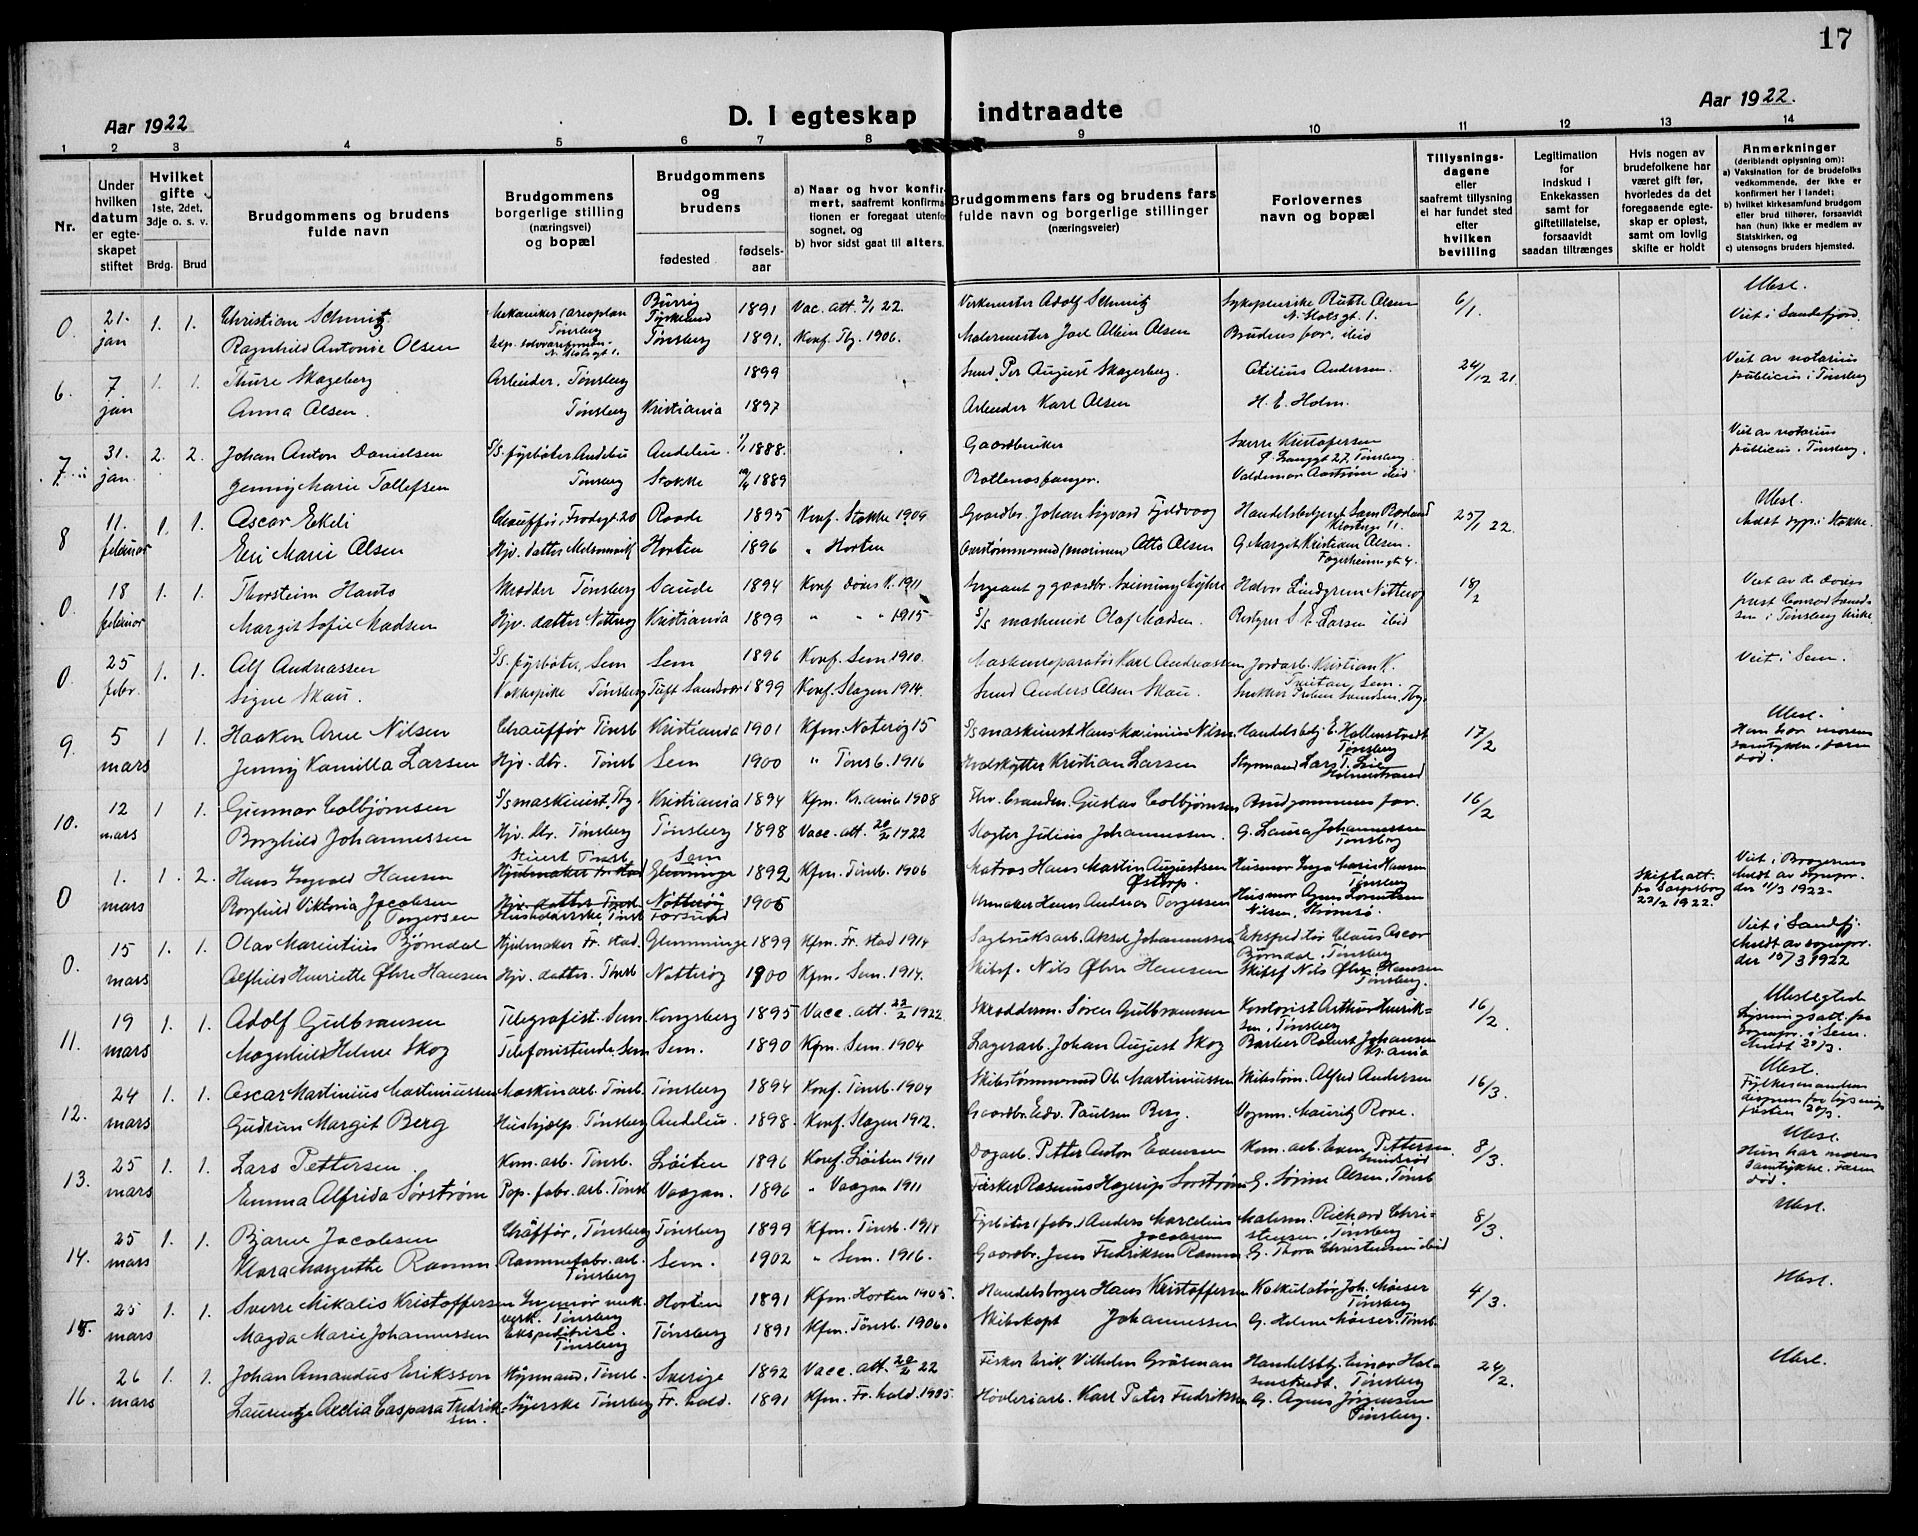 17
Aar 1922
D. I egteskap indtraadte
Aar 1922.
1 2 3 4 5 6 7 8 9 10 11 12 13 14
Nr.
Under hvilken datum er egteskapet stiftet
Hvilket gifte
1ste, 2det, 3dje o. s. v.
Brdg. Brud
Brudgommens og brudens fulde navn
Brudgommens borgerlige stilling (næringsvei) og bopæl
Brudgommens og brudens
fødested
fødselsaar
a) Naar og hvor konfirmert, saafremt konfirmationen er foregaat utenfor sognet, og
b) hvor sidst gaat til alters.
Brudgommens fars og brudens fars fulde navn og borgerlige stillinger (næringsveier)
Forlovernes navn og bopæl
Tillysningsdagene eller saafremt tillysning ei har fundet sted efter hvilken bevilling
Legitimation for indskud i Enkekassen samt for giftetillatelse, forsaavidt saadan tiltrænges
Hvis nogen av brudefolkene har været gift før, hvorledes da det foregaaende egteskap er opløst, samt om lovlig skifte er holdt
Anmerkninger
(deriblandt oplysning om):
a) Vaksination for de brudefolks vedkommende, der ikke er konfirmert her i landet;
b) hvilket kirkesamfund brudgom eller brud tilhører, forsaavidt han (hun) ikke er medlem av Statskirken, og
c) utensogns bruders hjemsted.
0 21. jan 1. 1. Christian Schmitz. Mekaniker Tønsberg 1891 Vac. att. 2/1 22. Verkmester Adolf Schmitz Sykepleierske Ruth Olsen N. Slotsgt. 1. 6/1. Ubesl. Viet i Sandefjord.
Ragnhild Antonie Olsen N. Slotsgt 1. Tønsberg 1891. Konf. Tbg. 1906. Malermester Joel Albin Olsen Brudens far, ibid
6. 7. jan 1. 1. Thure Skageberg Arbeider, Tønsberg 1899 Smed Per August Skagerberg. Otilius Andersen. 24/12 21. Viet av notarius publicus i Tønsberg
Anna Olsen. Tønsberg Kristiania 1897 Arbeider Karl Olsen H. E. Holm.
7 31. jan 2. 2. Johan Anton Danielsen S/S. fyrbøter Andebu Andebu 1/1 1888. Gaardbruker Sverre Kristofersen Langgt 27, Tønsberg. Viet av notarius publicus i Tønsberg.
Jenny Marie Tollefsen Tønsberg Stokke 1889 Rottenosfanger. Valdemar Aastrøm ibid
8 11. februar 1. 1. Oscar Ekeli Chauffør, Frodegt. 20 Raade 1895 Konf. Stokke 1909 Gaardbr. Johan Sigvard Fjeldvaag Handelsbetjent 25/1 22. Ubesl.
Elvi Marie Olsen Hjv. datter Horten 1896 " Horten Overtømmermand (marinen) Otto Olsen G. Margit Kristiane Olsen. Fagerheimgt 4.
0 18 februar 1. 1. Thorsteim Hanto Skrædder Tønsberg Saude 1894 Konf. døves K. 1911 Sergeant og gaardbr. Halvor Lindgren Nøtterøy 18/2 Viet av de døves prest Conrad Svendsen i Tønsberg kirke.
Margit Sofie Madsen Hjv. datter Nøtterøy Kristiania 1899 " " 1915 S/S maskinist Olaf Madsen. Restyrer S. E. Larsen ibid
0. 25 febr. 1. 1. Alf Andreassen S/S. fyrbøter, Sem Sem 1896 Konf. Sem 1910. Karl Andreassen Jordarb. Kristian K. Sem. Viet i Sem.
Signe Skau. Tønsberg 1899 Konf. Slagen 1914. Smed Anders Olsen Skau. Svendsen, Tbg.
9. 5 mars 1 1. Haakon Arne Nilsen Chauffør Tønsb Kristiania 1901 Kfm. Nøterøy 15 S/S maskinist Hans Nilsen Handelsbetj. E. Hallenstvedt Tønsberg 17/2 Ubesl. Han har morens samtykke, faren død.
Jenny Kamilla Larsen Hjv. dtr. Tønsb Sem 1900 " Tønsb. 1916 Hvalskytter Kristian Larsen Styrmand Lars T. Lie Holmestrand
10. 12 mars 1 1. Gunnar Colbjørnsen S/S maskinist, Tbg. Kristiania 1894 Kfm. Kr.ania 1908 Gustav Colbjørnsen Brudgommens far. 16/2
Borghild Johannessen Hjv. dtr. Tønsberg Tønsberg 1898 Vacc. att. 20/2 1922 Slagter Julius Johannessen. G. Laura Johannessen Tønsberg
0 1. mars 1. 2. Hans Ingvald Hansen Tønsb. Sem Glemminge 1892 Kfm. Tønsb. 1906 Matros Hans Martin Augustsen Østtorp. Husmor Inga Marie Hansen Tønsberg Skifteatt. fra Sarpsborg 22/2 1922. Viet i Brogernes Anldt av sognepr. der 11/3 1922.
Borghild Viktoria Jacobsen Torgersen Husholderske Tønsb Nøtterøy 1905 Urmaker Hans Andreas Torgersen Husmor Agnes Lorentzen Nilsen, Strømsø.
0. 15 mars 1. 1. Olav Marentius Bjørndal Hjulmaker Fr. stad. Glemminge 1899 Kfm. Fr. stad 1914 Sagbruksarb. Aksel Johannessen Ekspeditør Claus Oscar Bjørndal, Tønsberg Viet i Sandefj. Anldt av sognepr. der 15/3 1922
Alfhild Henriette Øhre Hansen Hjv. datter. Tønsb Nøtterøy 1900 Kfm. Sem. 1914. Skibsf. Nils Øhre Hansen Skibsf Nils Øhre Hansen Tønsberg.
11. 19 mars 1. 1. Adolf Gulbransen Telegrafist. Sem. Kongsberg 1895 Vacc. att. 22/2 1922. Skrædderm. Søren Gulbransen Kontorist Arthur Henriksen, Tønsberg 16/2 Ubeslegtede Lysningsatt. fra sognepr. i Sem. Anldt 20/3.
Magnhild Helene Skog Telefonistinde Sem Sem. 1890 Kfm. Sem. 1904 Lagerarb. Johan August Skog Barber Robert Johansen Kr.ania
12. 24 mars 1. 1. Oscar Martinius Martiniussen Maskinarb. Tønsb. Tønsberg 1894 Konf. Tønsb. 1904 Skibstømmermd Ole Martiniussen Skibstøm. Alfred Andersen 16/3. Ubesl. Fylkesmandens dispens fra lysningsfristen 20/3.
Gudrun Margit Berg Hushjælp. Tønsberg Andebu. 1898. Konf. Slagen 1912. Gaardbr. Edv. Paulsen Berg. Vognm. Mauritz Rove.
13. 25 mars 1. 1. Lars Pettersen. Kom. arb. Tønsb. Løiten 1896 Konf. Løiten 1911 Dagarb. Petter Anton Evensen Kom. arb. Even Pettersen 8/3. Ubesl. Hun har morens samtykke. Faren død.
Emma Alfrida Sørstrøm Pap. fabr. arb. Tønsb Vaagan. 1896 " Vaagan 1911 Fisker Rasmus Hagerup Sørstrøm G. Sørine Olsen, Tønsb
14. 25 mars 1. 1. Bjarne Jacobsen Chaffør, Tønsberg Tønsberg 1899 Kfm. Tønsb. 1914 Fyrbøter (fabr.) Anders Marcelius Jacobsen Malerm. Richard Christensen. Tønsberg 8/3. Ubesl.
Klara Margrethe Ramm Rammefabr. arb. Tønsberg Sem. 1902 " Sem. 1916. Gaardbr. Jens Fredriksen Ramm G. Thora Christensen ibid
15. 25 mars 1. 1. Sverre Mikalis Kristoffersen Ingeniør mek. verk. Tønsberg Horten 1891 Kfm. Horten 1905. Handelsborger Hans Kristoffersen Kalkulatør Joh. Meiser Tønsberg 4/3. Ubesl.
Magda Marie Johannessen Ekspeditrise. Tønsberg Tønsberg 1891 Kfm. Tønsb. 1906. Skibskapt Johannessen G. Helene Meiser. Tønsb.
16. 26 mars 1. 1. Johan Amandus Eriksson Styrmand, Tønsb. Sverige 1892 Vacc. att. 20/2 22 Fisker Erik Vilhelm Gräsman Handelsbtj. Einar Halsenstvedt. Tønsberg 24/2. Ubesl.
Laurentze Aedlia Caspara Fredriksen. Syerske Tønsberg Fr. hald. 1891 Kfm. Fr. hald. 1905. Høvleriarb. Karl Peter Fredriksen G. Agnes Jørgensen Tønsberg.